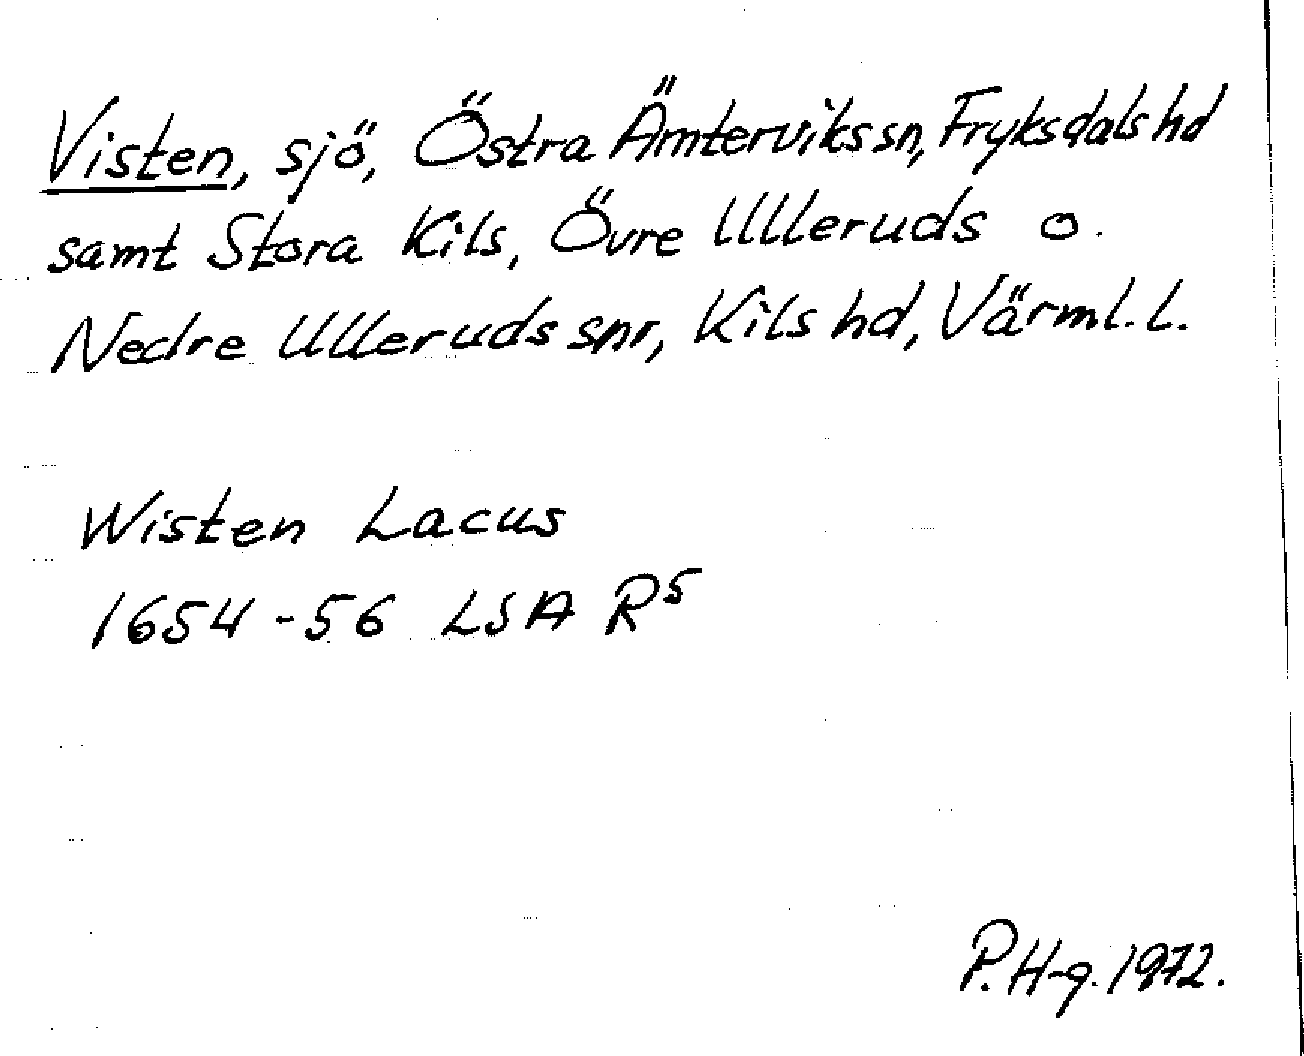 Visten, sjö, Östra Ämterviks sn, Fryksdals hd
samt Stora Kils, Övre Ulleruds o.
Nedre Ulleruds snr, Kils hd, Värml. l.
Wisten Lacus
1654-56 LSA R5
P. H-g. 1972.